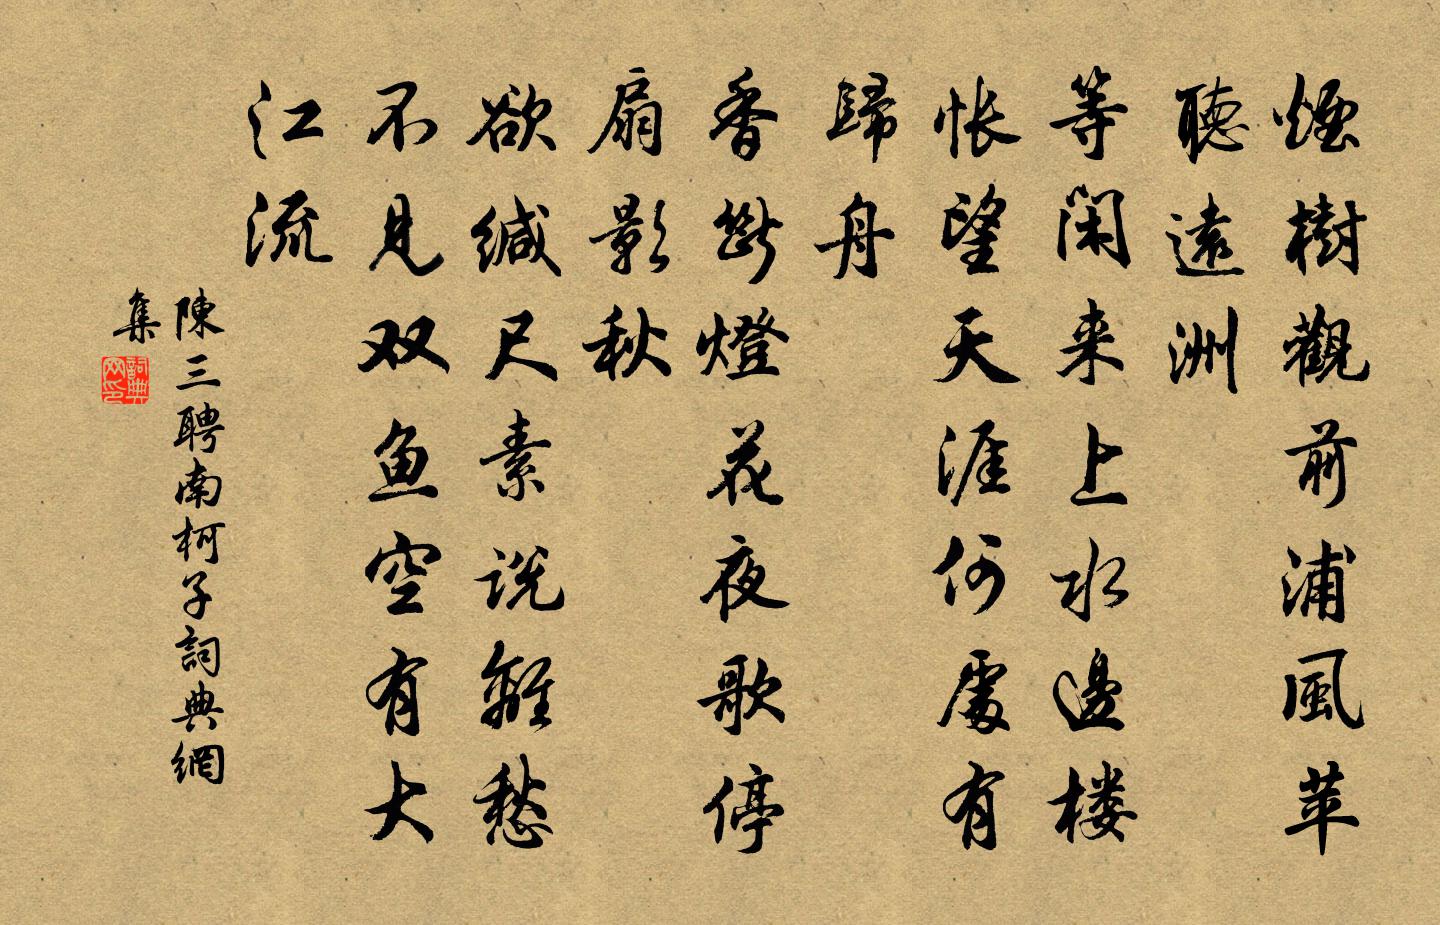 煙樹觀前浦風苹
聽遠洲
等閑来上水邊楼
悵望天涯何處有
歸舟
香斷燈花夜歌停
扇影秋
欲缄尺素说離愁
不見双鱼空有大
江流
陳三聘南柯子詞典網
集
詞典網印